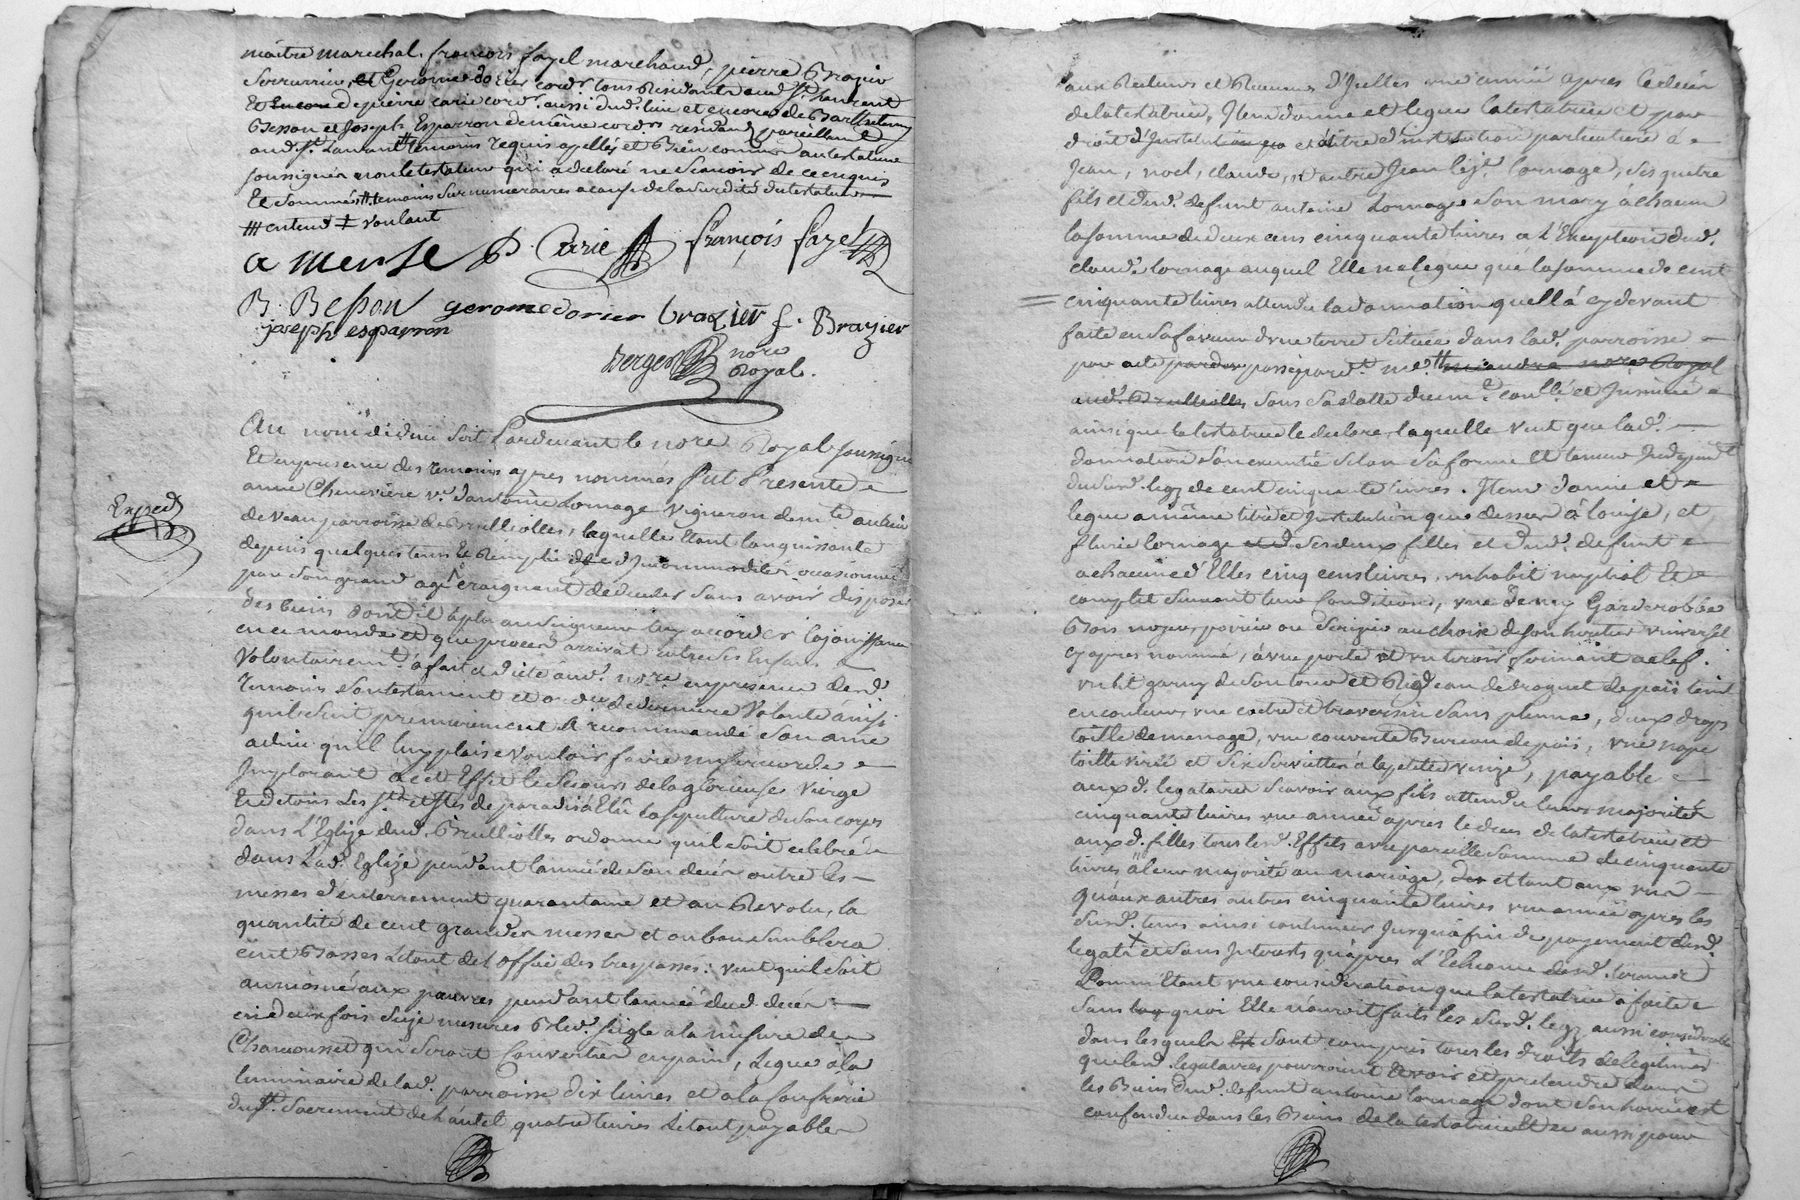 maitre marechal, françois fayel marchand, pierre Brazier
Serrurier, et Gerome dorier cord.r tous Residants aud. St. Laurent
Et Encore de pierre carie cord.r aussi dud. lieu et encore de Barthelemy
Besson et Joseph Esparron de même cord.rs residant pareillement
aud. St. Laurant # temoins requis apellés et Bien connus au testateur
soussignés non le testateur qui a declaré ne scavoir de ce enquis
Et sommé # temoins surnumeraires a cause de la surdité du testateur
# entend ‡ voulant
a merle P. Carie françois fayel
B. Besson gerome dorier brazier f. Brazier
joseph esparron
Berger nore
Royal.
Au nom de dieu soit Pardevant le nore Royal soussigné
Et en presence des temoins apres nommés fut Presente
anne Chenevière ve. d'antoine Lornage vigneron dem.t au lieu
de veau parroisse de Brulliolles, laquelle Etant languissante
depuis quelques tems Et Remplie d'Incommodités occasionnées
par son grand age craignant de deceder sans avoir disposé
des biens dont il a plu au seigneur luy accorder la jouissance
en ce monde et que procès arrivat entre ses Enfans
volontairem.t a fait et dicté aud. nore en presence desd.
temoins son testament et ordre de derniere volonté ainsi
qu'il suit premierement A recommandé son ame
a dieu qu'il luy plaise vouloir faire misericorde
Implorant a cet Effet le secours de la glorieuse vierge
Et de tous Les Sts et Stes de paradis a Elû la sepulture de son corps
dans L'Eglize dud. Brulliolles ordonne qu'il soit celebré
dans Lad. Eglize pendant l'année de son decés outre les
messes d'enterrement quarantaine et an Revolu, la
quantité de cent grandes messes et ou bon semblera
cent Basses Letout de l'office des trepassés: veut qu'il soit
aumoné aux pauvres pendant l'année dud. decés
en deux fois mesures Bled seigle a la mesure de
Chamousset qui seront Converties en pain, Legue a la
luminaire de lad. parroisse dix livres et a la Confrerie
du St. Sacrement de l'autel quatre livres Le tout payable
Exped.
aux Recteurs et Receveurs d'Icelles une année apres le decés
de la testatrice, Item donne et legue la testatrice et par
droit d'Institution et a titre d'institution particuliere á
Jean, noel, claude, et autre Jean Lornage, ses quatre
fils et dud. defunt antoine Lornage son mary á chacun
la somme de deux cens cinquante livres a L'Exception dud.
claude Lornage auquel Elle ne legue que la somme de cent
cinquante livres attendu la donnation qu'ell'á cydevant
faite en sa faveur d'une terre située dans lad. parroisse
par acte passé pard.t me. # nore Royal
aud. Brulliolles sous sa datte dûem.t conllé et Insinué
ainsi que la testatrice le declare, laquelle veut que lad.
donnation soit executée selon sa forme et teneur Independ.t
du susd. legz de cent cinquante livres. Item donne et
legue a même titre et Institution que dessus á louise, et
fleurie Lornage ses deux filles et dud. defunt
a chacune d'Elles cinq cens livres, un habit nuptial Et
complet suivant leur Condition, une demy Garderobbe
Bois noyer, poirier ou Serizier au choix de son heritier universel
cy apres nommé, á une porte et un tiroir fermant a clef.
un lit garny de son tour et Rideau de droguet de païs teint
en couleur, une coetre et traversin sans plume, deux draps
toille de menage, une couverte Bureau de païs, une nape
toille et six serviettes á la petite venize, payable
auxd. legataires scavoir aux fils attendu leurs majorités
cinquante livres une année apres le deces de la testatrice et
auxd. filles tous lesd. Effets avec pareille somme de cinquante
livres á leur majorité ou mariage, et tant aux uns
qu'aux autres autres cinquante livres une année apres les
susd. tems ainsi continuer Jusqu'a fin de payement desd.
legats et sans Interets qu'apres L'Echeance desd. termes
Commettant une consideration que la testatrice á faite
sans quoi Elle n'auroit faits les susd. legz aussi considerables
dans lesquels sont compris tous les droits de legitimes
que lesd. legataires pourroient avoir et pretendre dans
les Biens dud. defunt antoine Lornage dont son hoirie est
confondue dans les Biens de la testatrice Et ce aussi pour